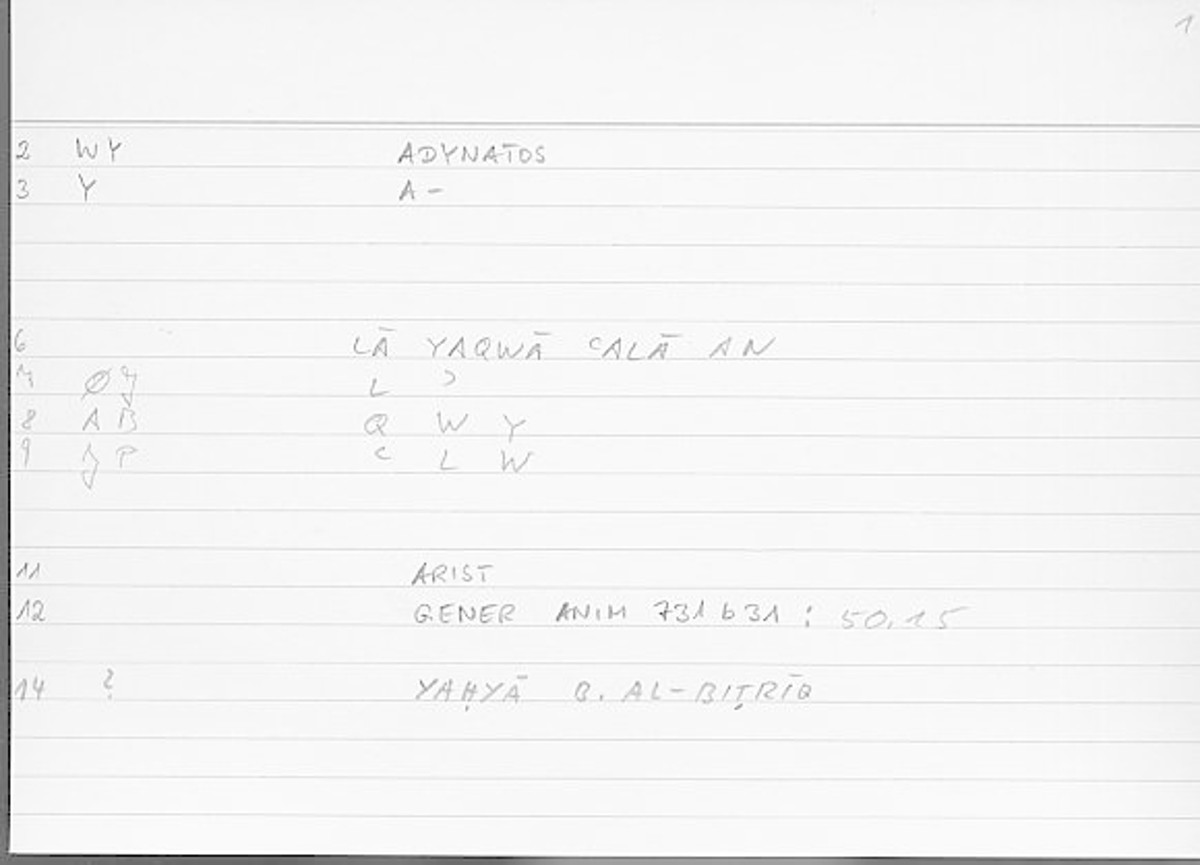 1
2 WY ADYNATOS
3 Y A-
6 LĀ YAQWĀ ʿALĀ AN
7 L ʾ
8 AB Q W Y
9 P ʿ L W
11 ARIST
12 GENER ANIM 731 b 31 : 50,15
14 ? YAḤYĀ B. AL-BIṬRĪQ